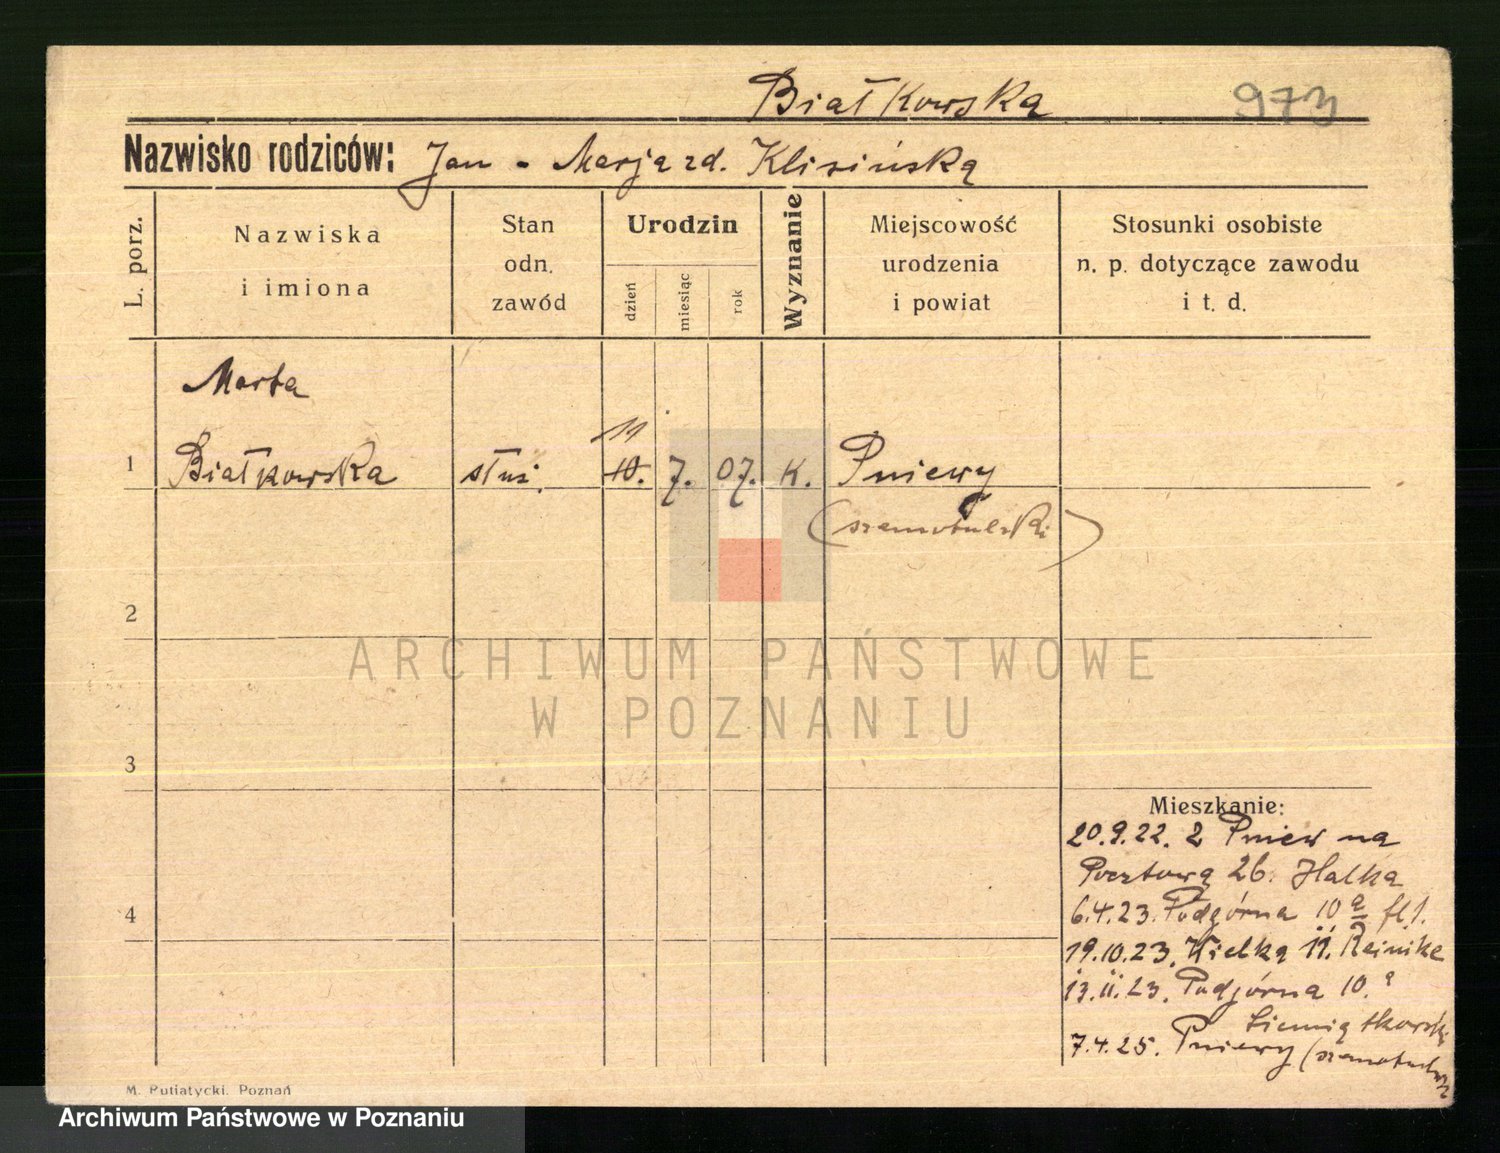 Białkowska 973
Nazwisko rodziców: Jan - Marja zd. Klisińska
L. porz.
Nazwiska
i imiona
Stan
odn.
zawód
Urodzin
dzień
miesiąc
rok
Wyznanie
Miejscowość
urodzenia
i powiat
Stosunki osobiste
n. p. dotyczące zawodu
i t. d.
Marta
11
1 Białkowska służ. 10. 7. 07. K. Pniewy
(szamotulski)
2
ARCHIWUM PAŃSTWOWE
W POZNANIU
3
Mieszkanie:
20.9.22. z Pniew na
Pocztową 26. Halka
4
6.4.23. Podgórna 10 a
19.10.23. Wielka 11. Reinike
13.11.23. Podgórna 10. a
7.4.25. Pniewy
M. Putiatycki. Poznań
Archiwum Państwowe w Poznaniu